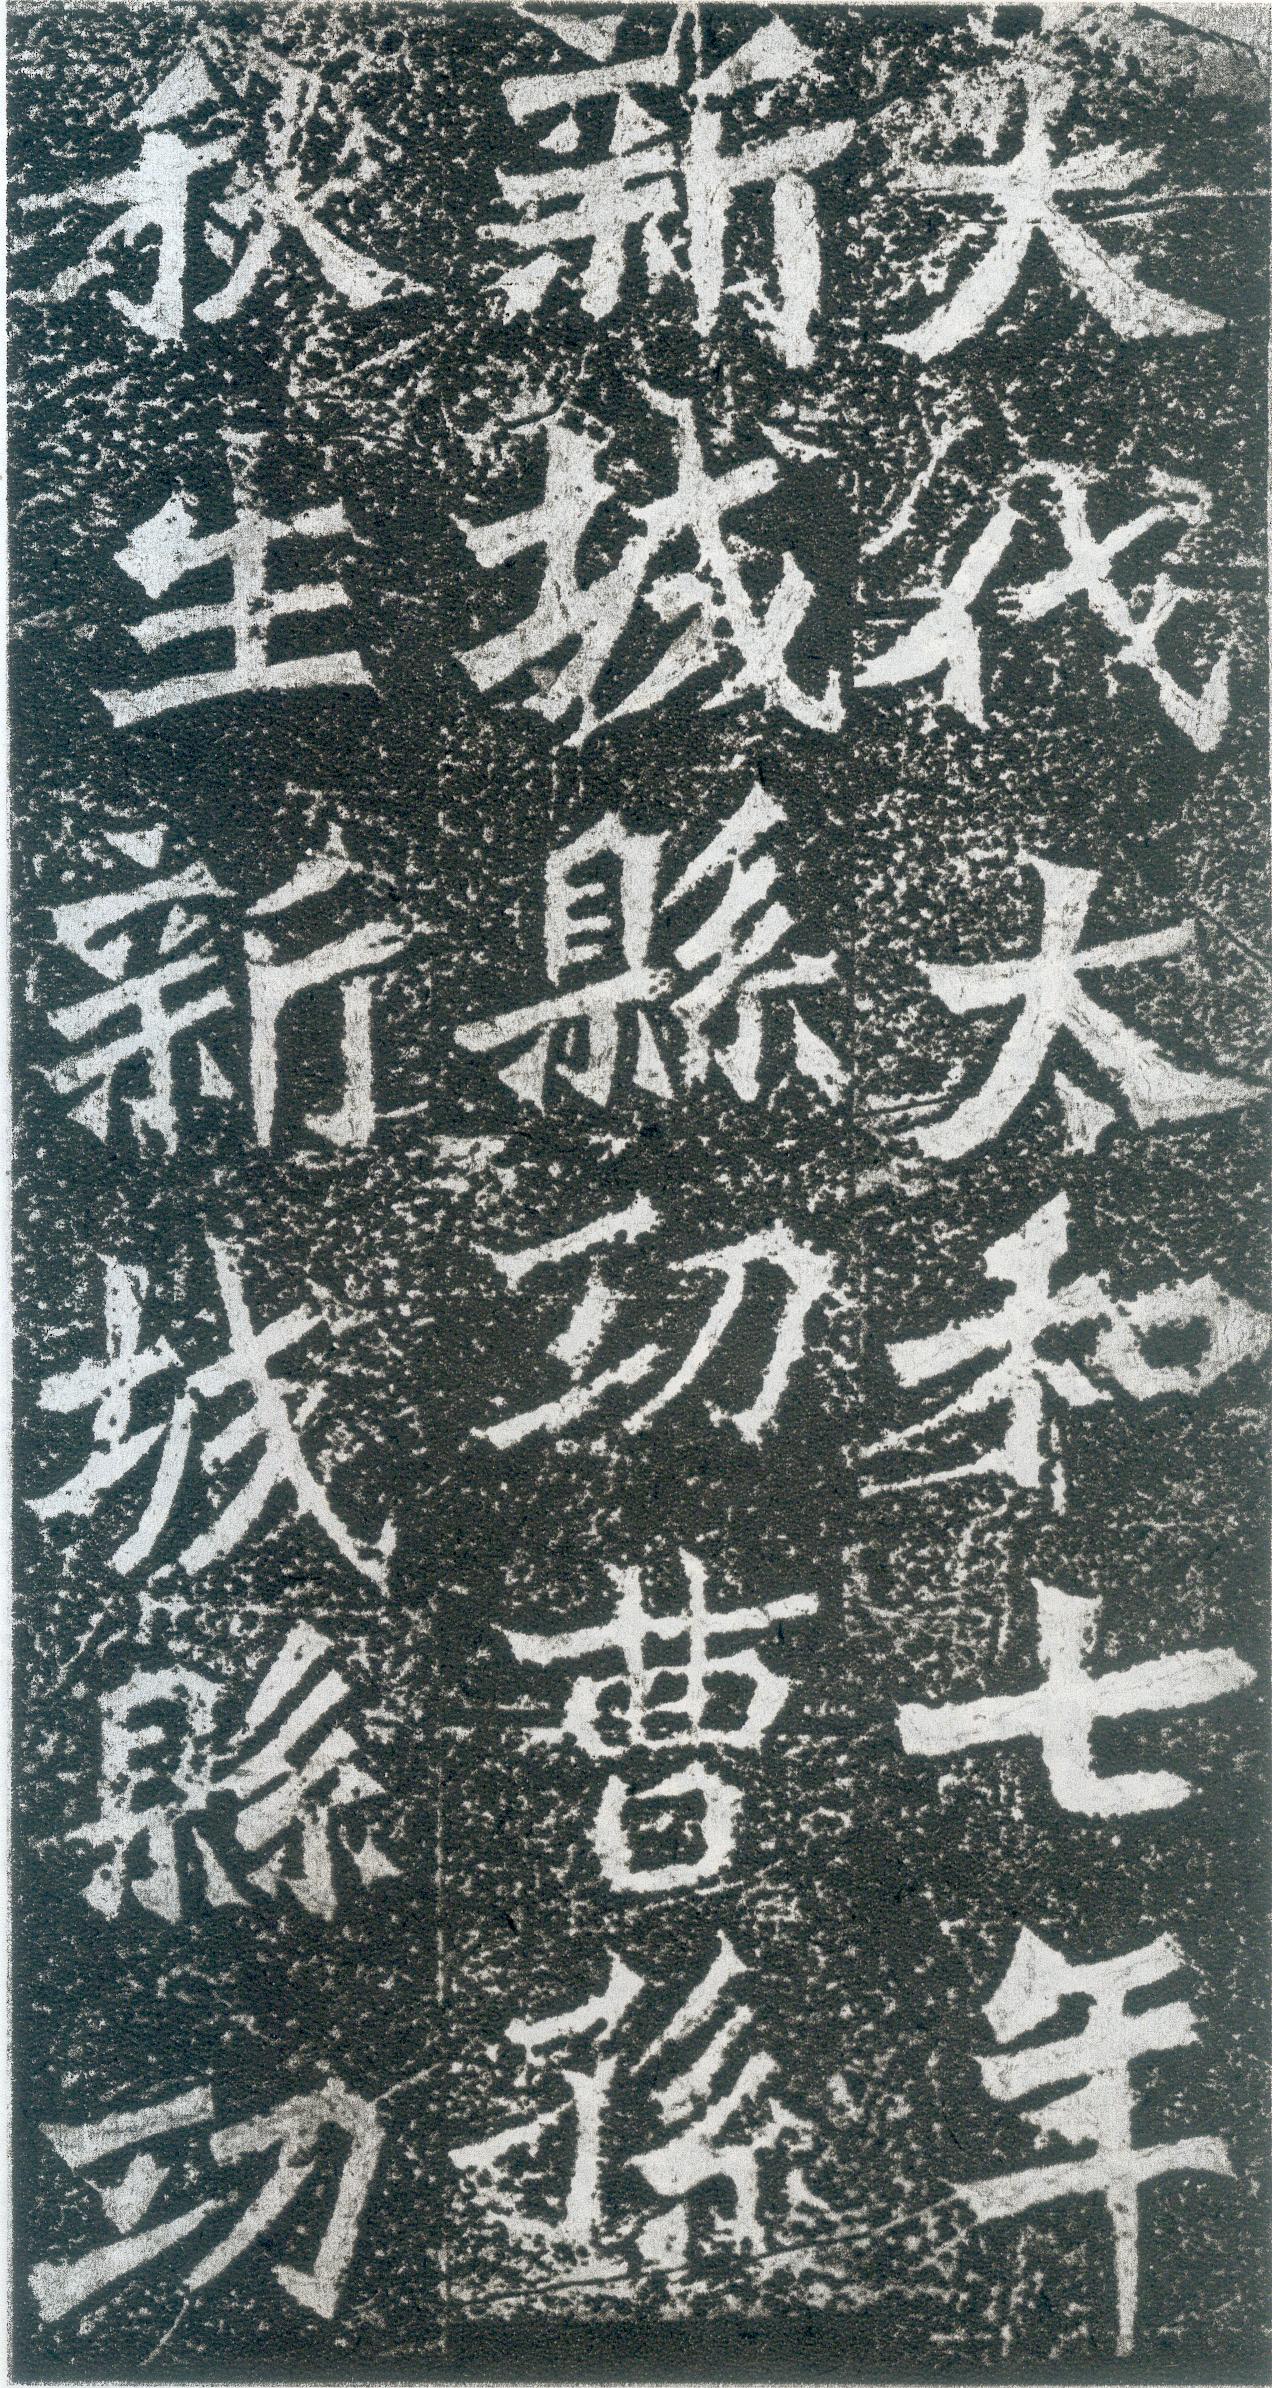 大代太和七年
新城縣功曹孫
秋生新城縣功